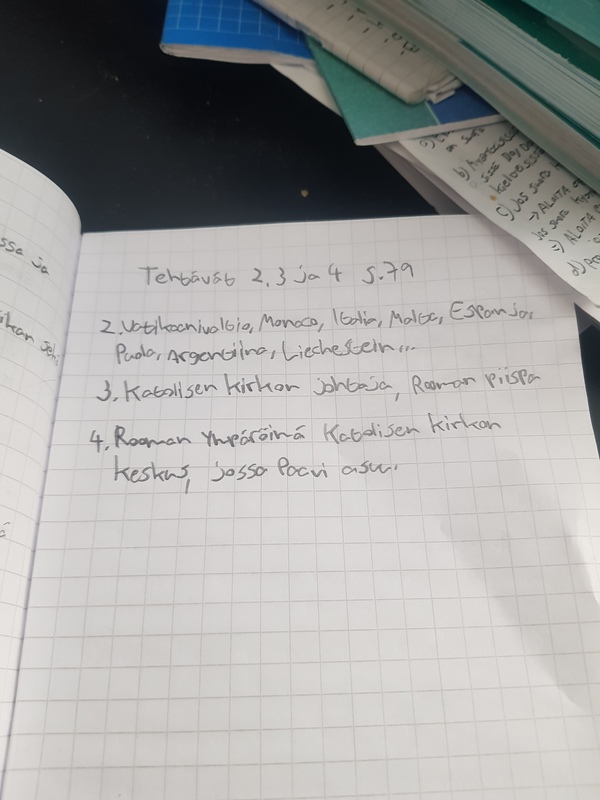 ssa ja
Tehtävät 2,3 ja 4 s.79
2. Vatikaanivaltio, Monaco, Italia, Malta, Espanja,
Puola, Argentiina, Liechestein...
3. Katolisen kirkon johtaja, Rooman piispa
4. Rooman ympäröinä Katolisen kirkon
keskus, jossa Paavi asuu.
b)
c) Jos
→ ALOITA
→ ALOITA
d)